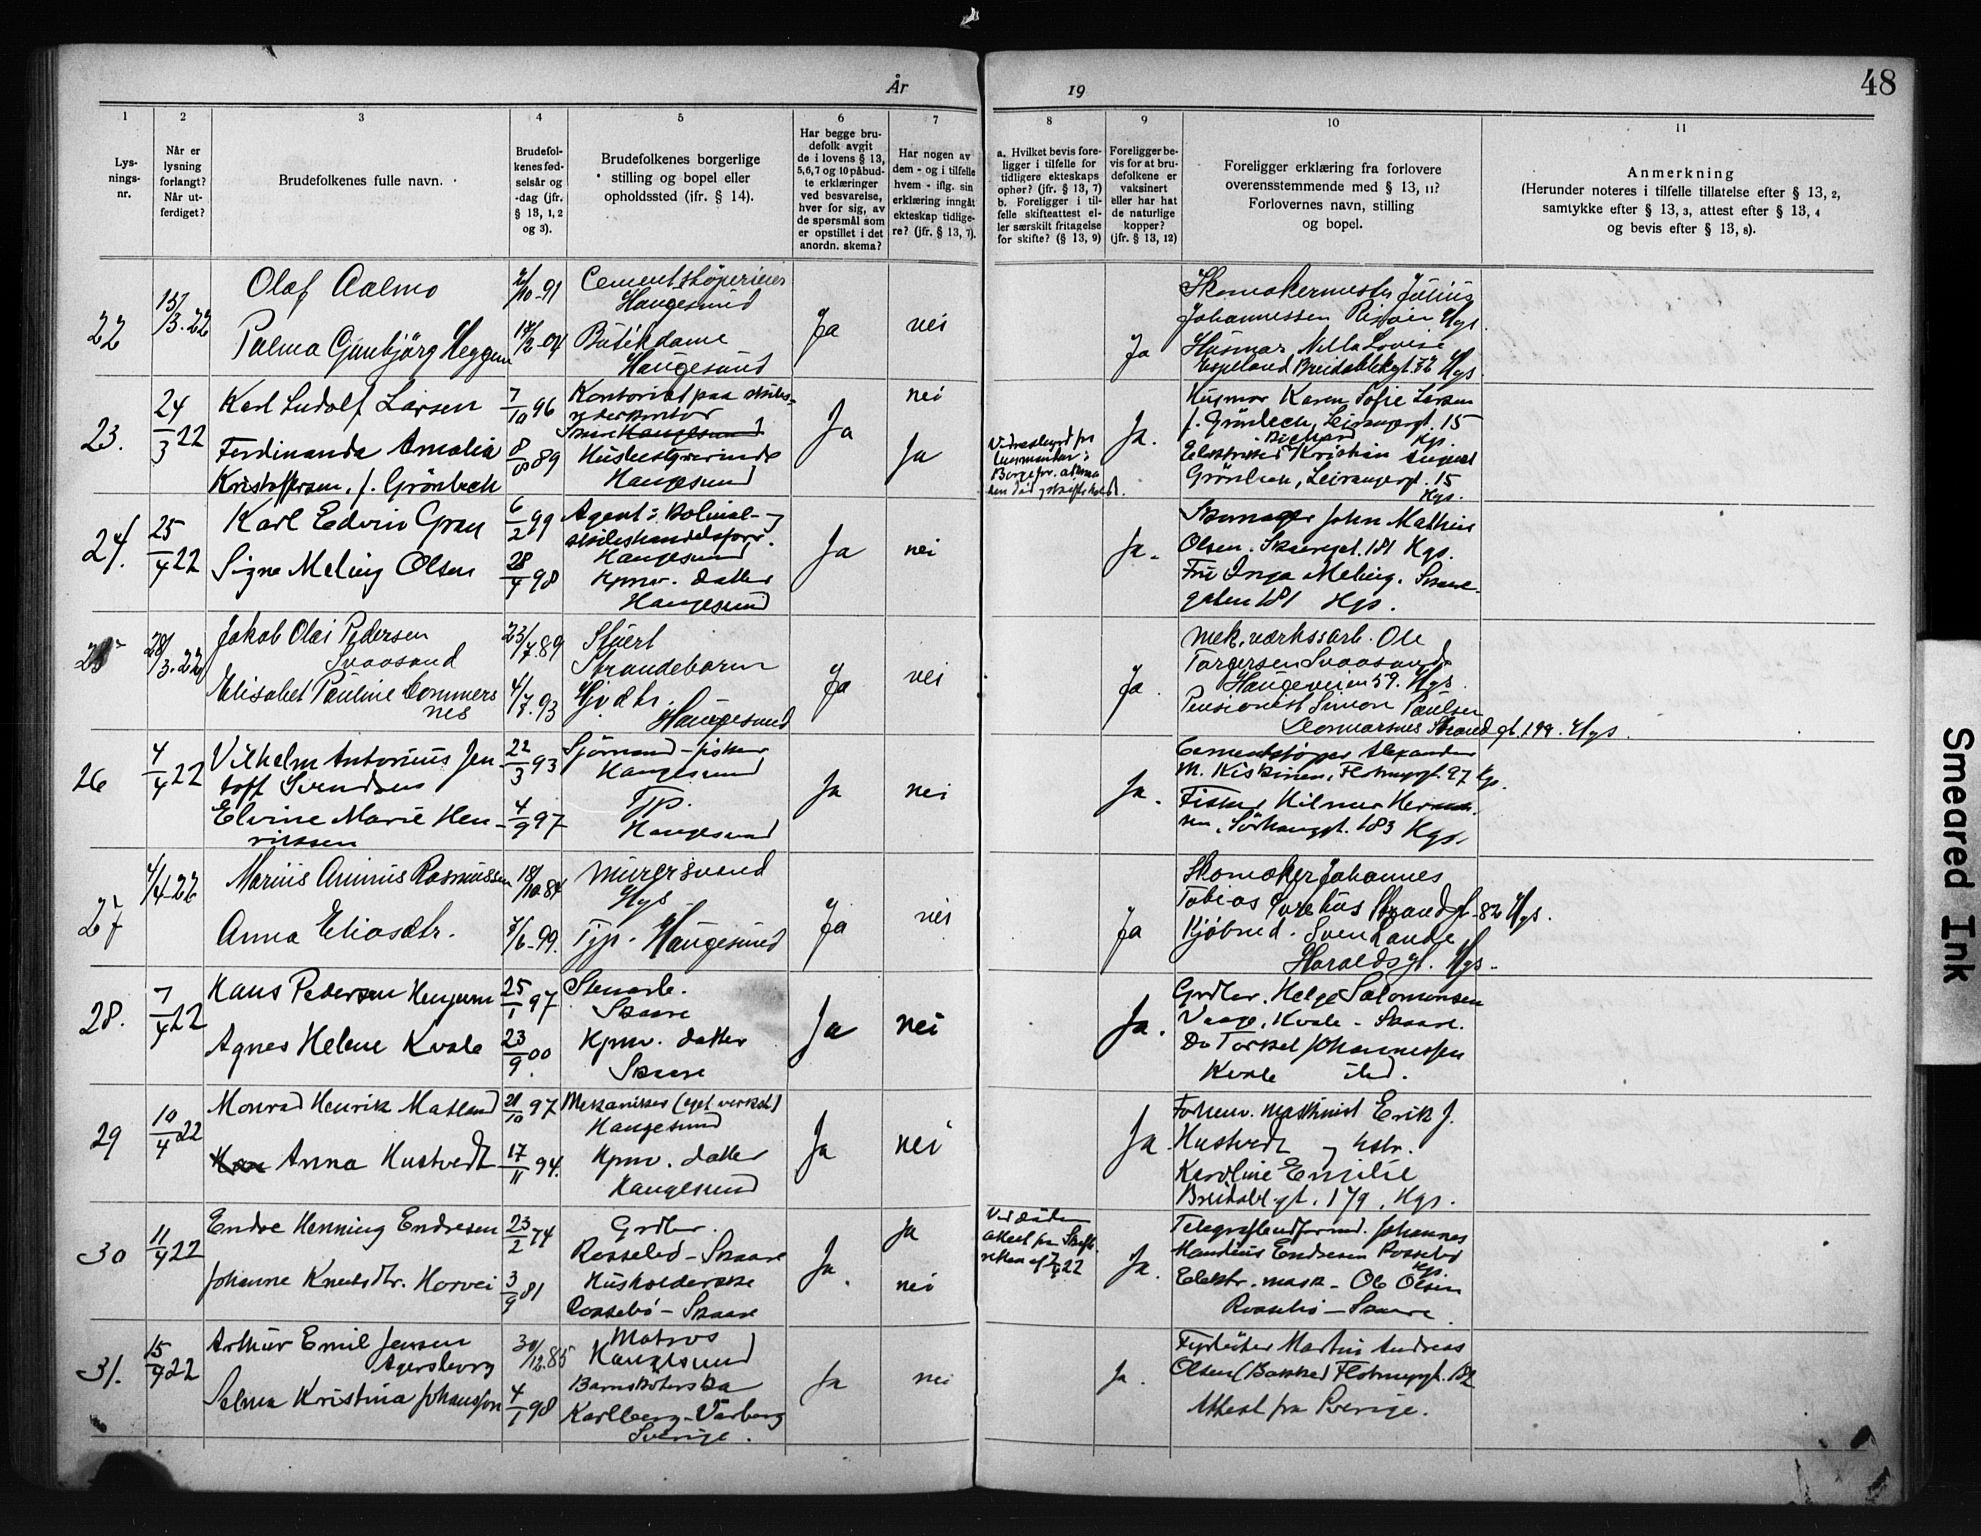 År
19
48
1
2
3
4
5
6
7
8
9
10
11
Lys-
nings-
nr.
Når er
lysning
forlangt?
Når ut-
ferdiget?
Brudefolkenes fulle navn.
Brudefol-
kenes fød-
selsår og
-dag (jfr.
§ 13, 1, 2
og 3).
Brudefolkenes borgerlige
stilling og bopel eller
opholdssted (ifr. § 14).
Har begge bru-
defolk avgit
de i lovens § 13,
5,6,7 og 10 påbud-
te erklæringer
ved besvarelse,
hver for sig, av
de spørsmål som
er opstillet i det
anordn. skema?
Har nogen av
dem - og i tilfelle
hvem - iflg. sin
erklæring inngåt
ekteskap tidlige-
re? (jfr. § 13, 7).
a. Hvilket bevis fore-
ligger i tilfelle for
tidligere ekteskaps
ophør? (jfr. § 13, 7)
b. Foreligger i til-
felle skifteattest el-
ler særskilt fritagelse
for skifte? (§ 13, 9)
Foreligger be-
vis for at bru-
defolkene er
vaksinert
eller har hat
de naturlige
kopper?
(jfr. § 13, 12)
Foreligger erklæring fra forlovere
overensstemmende med § 13, 11?
Forlovernes navn, stilling
og bopel.
Anmerkning
(Herunder noteres i tilfelle tillatelse efter § 13, 2,
samtykke efter § 13, 3, attest efter § 13, 4
og bevis efter § 13, 8).
22
15/3.22
Olaf Aalmo
2/10-91
Haugesund
Palma Gunbjörg Heggum
Butikdame
Haugesund
Ja
nei
Ja
Skomakermester Julius
Johannessen Hgs.
Husmor Nilla Lovise
Espeland Breidablikgt. Hgs.
23.
24/3 22
Karl Ludolf Larsen
7/10 96
Kontorist paa
Haugesund
Ferdinanda Amalia
Kristoffersen, f. Grönbech
8/8 89
Husbestyrerinde
Haugesund
Ja
nei
Ja
Ja.
Husmor Karen Sofie Larsen
f. Grönbech, Leirangergt. 15
Hgs.
Elektriker Kristian August
Grönbech, Leirangergt. 15
Hgs.
24.
25/4 22
Karl Edvin Grau
6/2 99
Agent i kolonial- og
Haugesund
Signe Meling Olsen
28/4 98
Hpmv. datter
Haugesund
Ja
nei
Ja.
Skomager John Mathias
Olsen. Skaregt. 181 Hgs.
Fru Inga Meling. Skare-
gaten 181 Hgs.
25
28/3.22
Jakob Olai Pedersen
Svaasand
23/7.89
Stuert
Strandebarm
Elisabet Pauline Lommers
nes
4/7.93
Hj. dtr.
Haugesund
Ja
nei
Ja.
Mek. værkssarb. Ole
Torgersen Svaasand
Haugeveien 59. Hgs.
Pensionist Simon Paulsen
Strandgt. 199. Hgs.
26
4/4 22
Vilhelm Antonius Jen
toft Svendsen
22/3 93
Sjömand - fisker
Haugesund
Elvine Marie Hen-
riksen
4/9 97
Tjp.
Haugesund
Ja
nei
Ja.
Cementstöper Alexander
M. Kiskinen, Flotmyrgt. 97 Hgs.
Fisker Hilmar Herman-
sen, Sörhauggt. 183 Hgs.
27
4/4-22
Marius Animus Rasmussen
18/10.84
Murersvend
Hgs.
Anna Eliasdtr.
7/6-99.
Tjp. Haugesund
Ja
nei
Ja
Skomaker Johannes
Tobias Strandgt. 82 Hgs.
Kjöbmd. Sven Lande
Haraldsgt. Hgs.
28.
7/4 22
Hans Pedersen Hengjum
25/1 97
Stenarb.
Skaare
Agnes Helene Kvale
23/9 00
Hpmv. datter
Skaare
Ja
nei
Ja.
Grdbr. Helge Salomonsen
Vaage, Kvale - Skaare.
Do Torkel Johannessen
Kvale ibid.
29
10/4 22
Monrad Henrik Matland
21/10 97
Mekaniker (eget verksted)
Haugesund
Anna Hustvedt
17/11 94.
Hpmv. datter
Haugesund
Ja
nei
Ja
Forhenv. maskinist Erik J.
Hustvedt og hstr.
Karoline Emilie
Breidabl.gt. 179, Hgs.
30
11/4 22
Endre Henning Endresen
23/2 74
Grdbr.
Rossebö - Skaare
Johanne Knutsdtr. Horvei
3/9 81
Husholderske
Rossebö - Skaare
Ja.
ja
nei
Ja.
Telegrafbudformd. Johannes
Maudius Endresen Rossebö
Hgs.
Elektr. mask - Ole Olsen
Rossebö - Skaare
31.
15/4 22
Arthur Emil Jensen
Agersborg
30/12.85
Matros
Haugesund
Selma Kristina Johansson
4/1 98
Barnsköterska
Karlberg - Varberg
Sverige.
Ja
nei
Ja.
Fyrböter Martin Andreas
Olsen (Bakke) Flotmyrgt.
Attest fra Sverige.
Smeared Ink